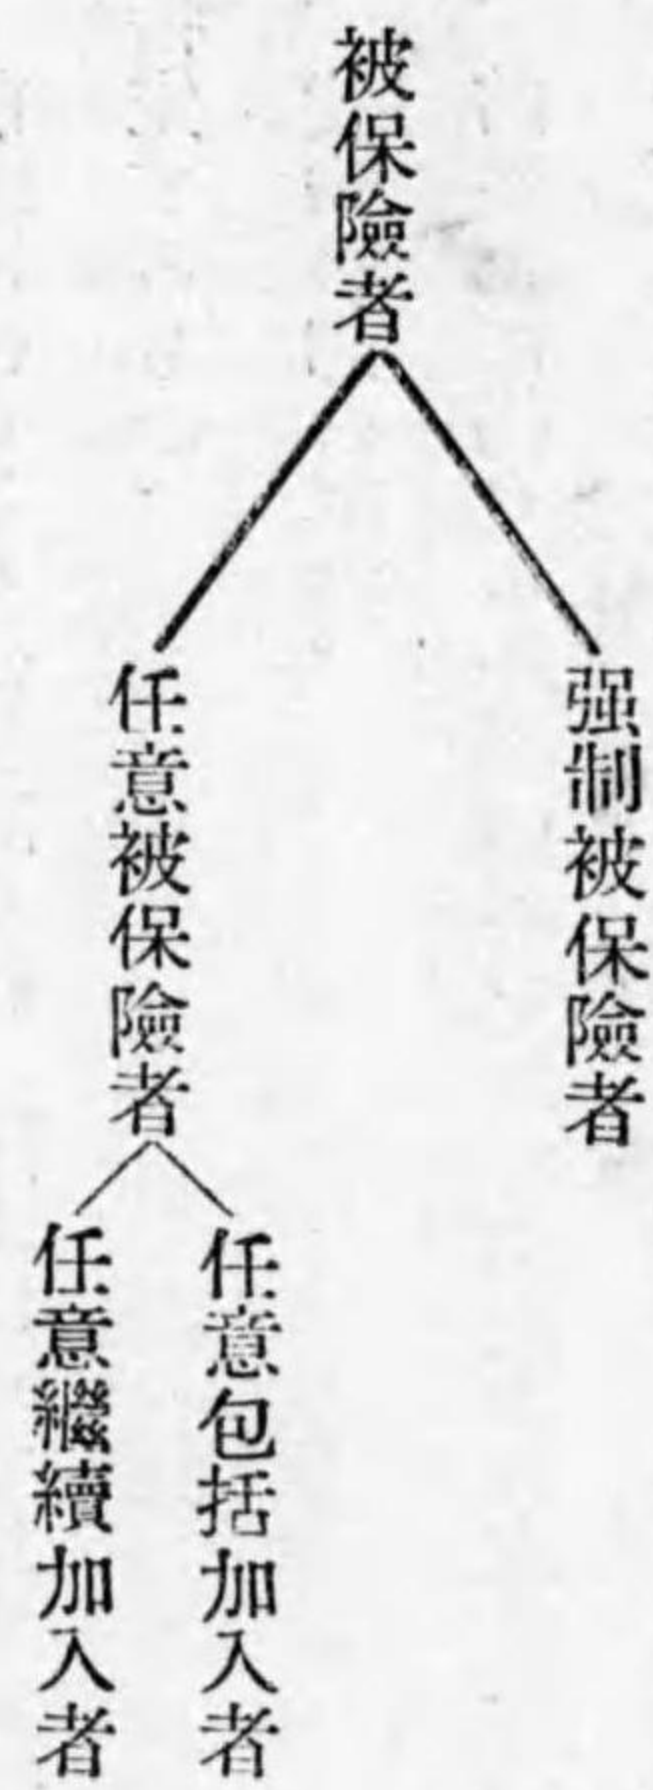 被保險者
强制被保險者
任意被保險者
任意包括加入者
任意繼續加入者